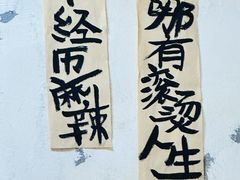 不经历麻辣
哪有滚烫人生